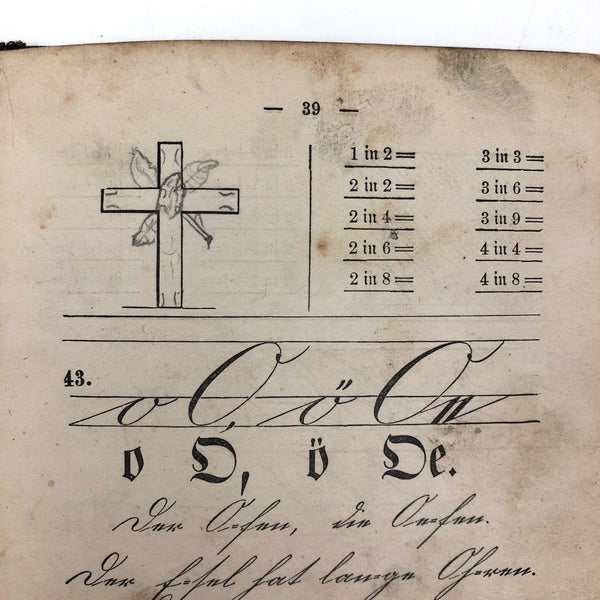 — 39 —
1 in 2 =
2 in 2 =
2 in 4 =
2 in 6 =
2 in 8 =
3 in 3 =
3 in 6 =
3 in 9 =
4 in 4 =
4 in 8 =
43.
o O, ö Oe
o O, ö Oe.
Der O=fen, die Oe=fen.
Der E=sel hat lan=ge Oh=ren.